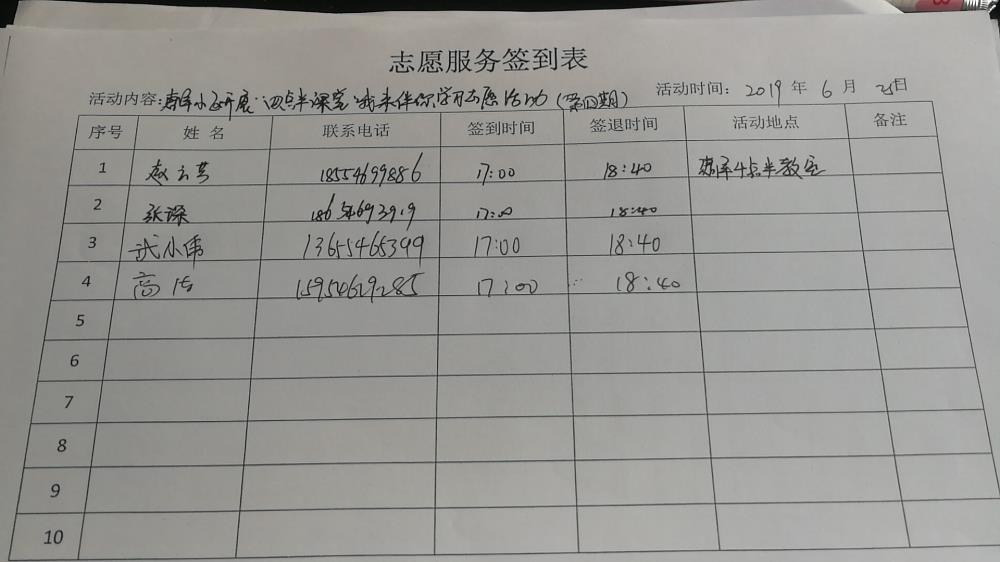 志愿服务签到表
活动内容:小区开展"四点半课堂"我来伴你学习志愿活动(第四期) 活动时间: 2019年6月25日
序号 姓名 联系电话 签到时间 签退时间 活动地点 备注
1 赵云芸 18554699886 17:00 18:40 4点半教室
2 张深 17:00 18:40
3 武小伟 13655465399 17:00 18:40
4 高洁 15954629285 17:00 18:40
5
6
7
8
9
10